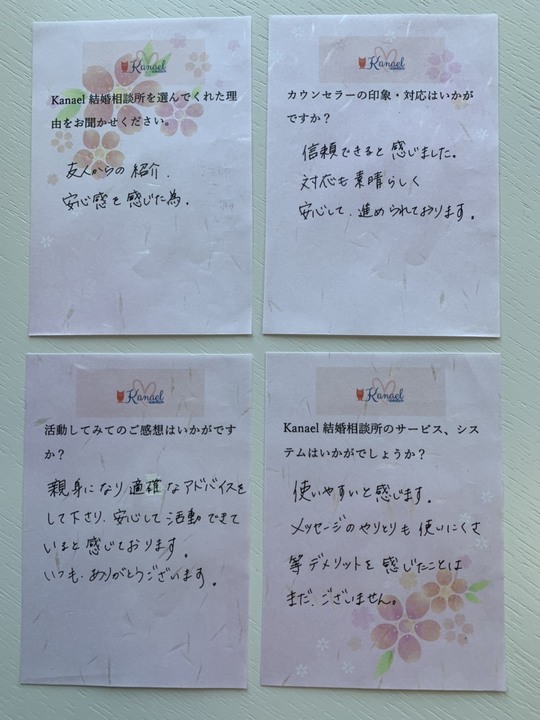 Kanael
Kanael 結婚相談所を選んでくれた理
由をお聞かせください。
友人からの紹介.
安心感を感じた為.
Kanael
カウンセラーの印象・対応はいかが
ですか？
信頼できると感じました.
対応も素晴らしく
安心して、進められております。
Kanael
活動してみてのご感想はいかがです
か？
親身になり適確なアドバイスを
して下さり、安心して活動できて
いると感じております。
いつも、ありがとうございます。
Kanael
Kanael 結婚相談所のサービス、シス
テムはいかがでしょうか？
使いやすいと感じます.
メッセージのやりとりも使いにくさ
等デメリットを感じたことは
まだ、ございません。